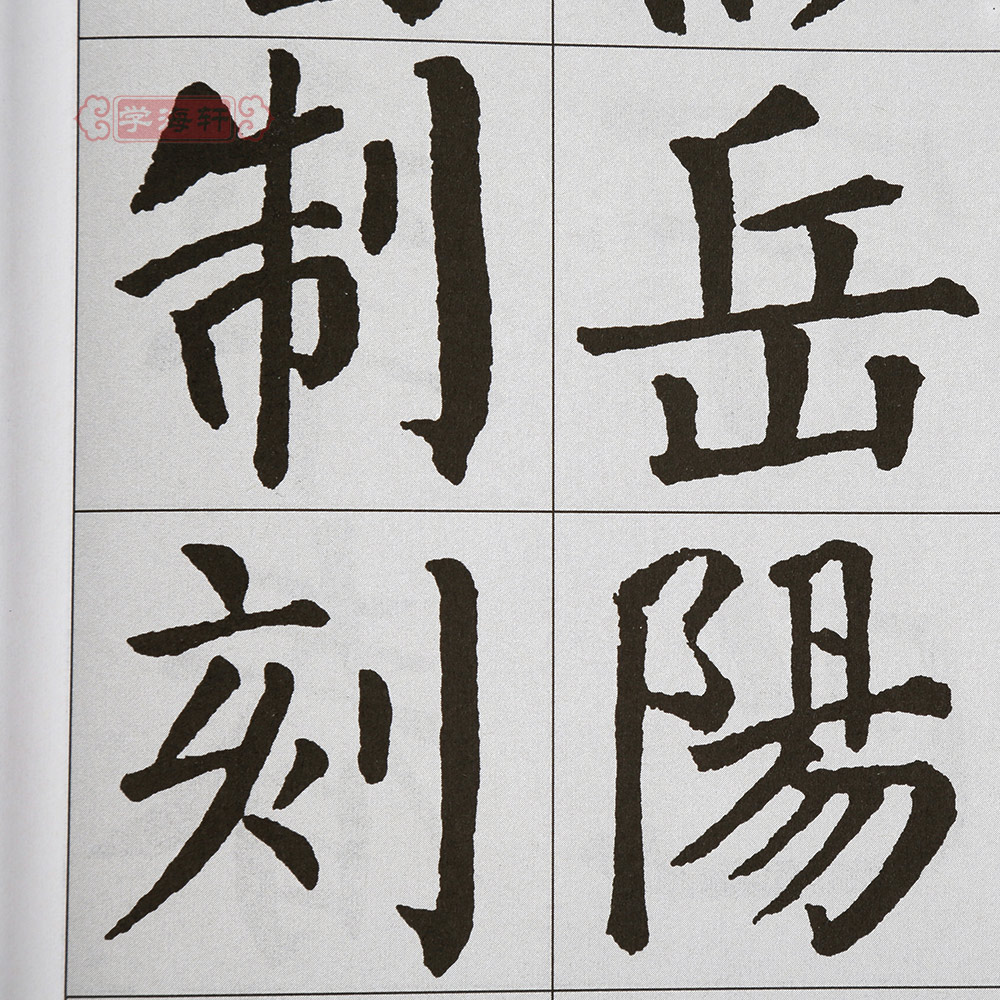 岳陽
制刻
学海轩